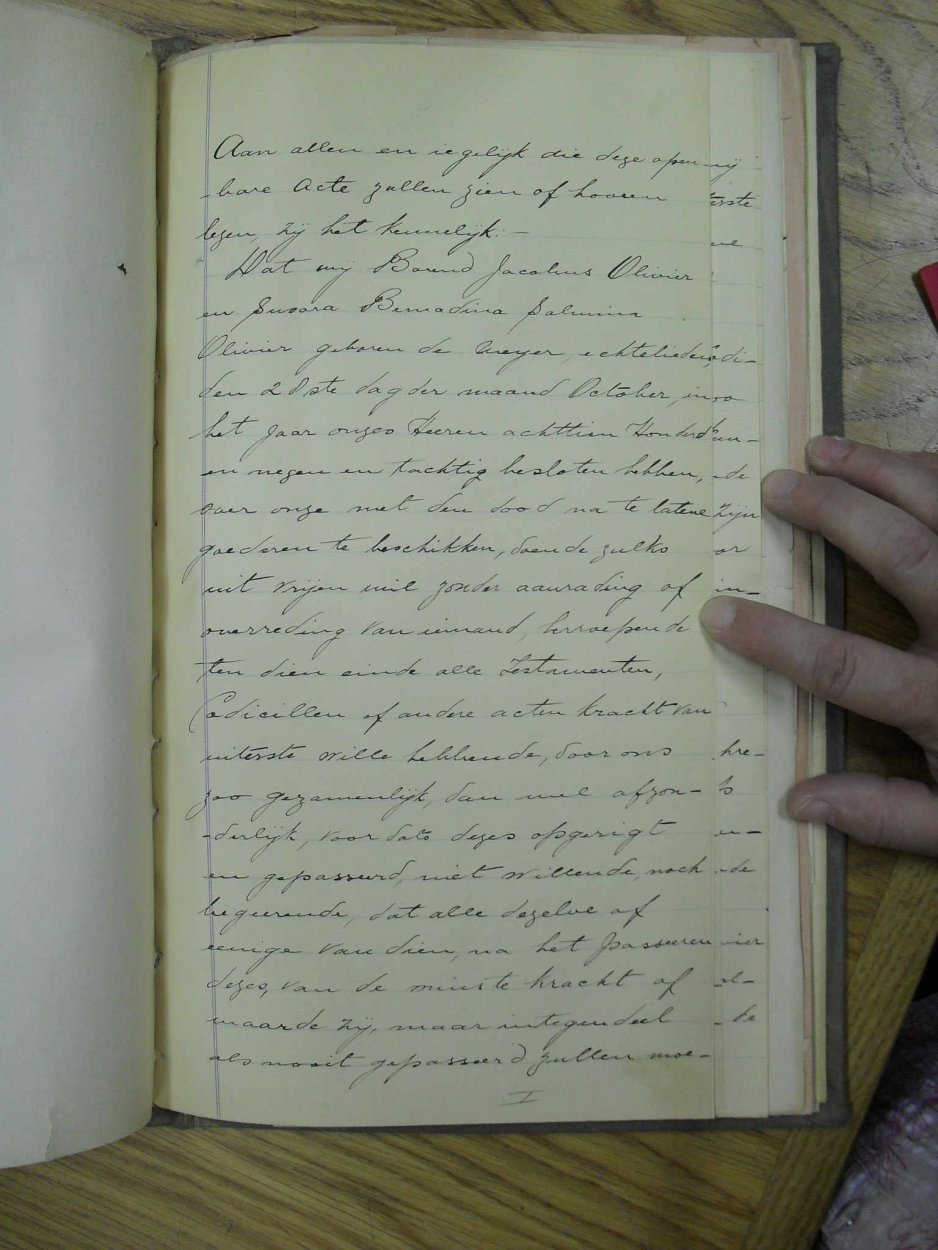 Aan allen en iegelijk die deze open-
-bare Acte zullen zien of hooren
lezen, zij het kennelijk:-
Dat wij Barend Jacobus Olivier
en Susara Bernadina Salmina
Olivier geboren de Meyer, echtelieden,
den 28ste dag der maand October, in
het jaar onzes Heeren achttien Honderd
en negen en tachtig besloten hebben,
over onze met den dood na te latene
goederen te beschikken, doende zulks
uit vrijen wil zonder aanrading of
overreding van iemand, herroepende
ten dien einde alle Testamenten,
Codicillen of andere acten kracht van
uiterste wille hebbende, door ons
zoo gezamenlijk, dan wel afzon-
-derlijk, voor dato dezes opgerigt
en gepasseerd, niet willende, noch
begeerende, dat alle dezelve of
eenige van dien, na het passeeren
dezes, van de minste kracht of
waarde zij, maar integendeel
als nooit gepasseerd zullen moe-
I
erste
we
di-
de
zijn
or
in-
hre-
de
vier
de